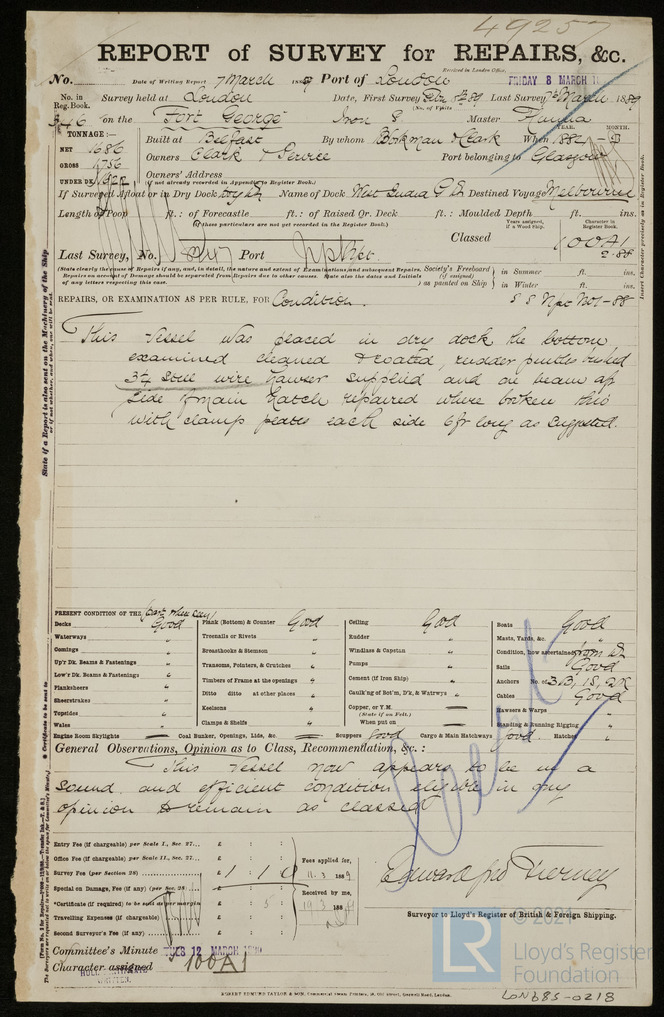 49257
REPORT of SURVEY for REPAIRS, &c.
Received in London Office,
No. Date of Writing Report 7 March 1889 Port of London FRIDAY 8 MARCH
No. in Reg. Book. Survey held at London Date, First Survey Last Survey 7th March 1889
(No. of Visits)
on the Fort George Iron Master
TONNAGE:—
NET 1686
GROSS 1756
UNDER DK
Built at Belfast By whom Workman Clark When 1884
YEAR. MONTH.
Owners Clark & Service Port belonging to Glasgow
Owners' Address
(if not already recorded in Appendix to Register Book.)
If Surveyed Afloat or in Dry Dock Dry Dk Name of Dock West India G D Destined Voyage Melbourne
Length of Poop ft.: of Forecastle ft.: of Raised Qr. Deck ft.: Moulded Depth ft. ins.
(If these particulars are not yet recorded in the Register Book.)
Years assigned, if a Wood Ship.
Character in Register Book.
Last Survey, No. Port
Classed 100A1
(State clearly the cause of Repairs if any, and, in detail, the nature and extent of Examinations, and subsequent Repairs.
Repairs on account of Damage should be separated from Repairs due to other causes. State also the dates and Initials
of any letters respecting this case.
Society's Freeboard (if assigned) as painted on Ship
in Summer ft. ins.
in Winter ft. ins.
REPAIRS, OR EXAMINATION AS PER RULE, FOR Condition.
This Vessel was placed in dry dock the bottom
examined cleaned & coated, rudder pintles bushed
steel wire hawser supplied and one beam aft
side of main hatch repaired where broken this
with clamp plates each side 6ft long as suggested.
PRESENT CONDITION OF THE
Decks Good
Waterways "
Comings "
Up'r Dk. Beams & Fastenings "
Low'r Dk. Beams & Fastenings "
Planksheers "
Sheerstrakes "
Topsides "
Wales
Engine Room Skylights
Plank (Bottom) & Counter Good
Treenails or Rivets "
Breasthooks & Stemson "
Transoms, Pointers, & Crutches "
Timbers of Frame at the openings "
Ditto ditto at other places "
Keelsons "
Clamps & Shelfs "
Coal Bunker, Openings, Lids, &c.
Ceiling Good
Rudder "
Windlass & Capstan "
Pumps "
Cement (if Iron Ship) "
Caulk'ng of Bot'm, D'k, & Watrwys "
Copper, or Y.M.
(State if on Felt.)
When put on
Scuppers Good
Cargo & Main Hatchways Good
Boats Good
Masts, Yards, &c. "
Condition, how ascertained from Dk
Sails Good
Anchors No. of 3B, 1S, 2K
Cables Good
Hawsers & Warps "
Standing & Running Rigging "
Hatches "
General Observations, Opinion as to Class, Recommendation, &c.:
This Vessel now appears to be in a
sound and efficient condition eligible in my
opinion to remain as classed
Entry Fee (if chargeable) per Scale I., Sec. 27... £ : :
Office Fee (if chargeable) per Scale II., Sec. 27... £ : :
Survey Fee (per Section 28) £ 1 : 1 : 0
Special on Damage, Fee (if any) (per Sec. 28) £ : :
*Certificate (if required) to be sent as per margin £ : 5 :
Travelling Expenses (if chargeable) £ : :
Second Surveyor's Fee (if any) £ : :
Fees applied for, 11.3 1889
Received by me,
Edward Tierney
Surveyor to Lloyd's Register of British & Foreign Shipping.
Committee's Minute TUES 12 MARCH
Character assigned 100A1
ROBERT EDMUND TAYLOR & SON,
© 2021
LR
Lloyd's Register
Foundation
LON685-0218